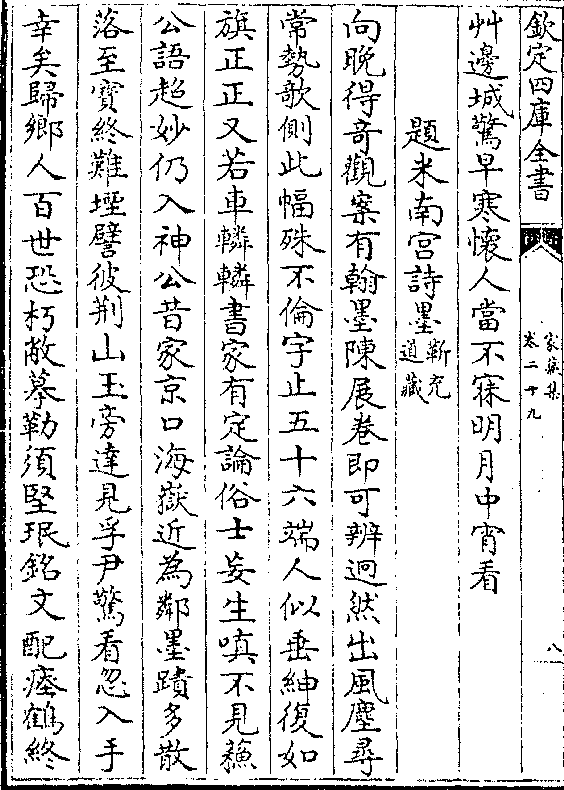 欽定四庫全書
家藏集
卷二十九
八
艸邊城驚早寒懷人當不寐明月中宵看
題米南宫詩墨靳充道藏
向晚得竒觀案有翰墨陳展卷即可辨迥然出風塵尋
常勢欹側此幅殊不倫字止五十六端人似垂紳復如
旗正正又若車轔轔書家有定論俗士妄生嗔不見蘓
公語超妙仍入神公昔家京口海嶽近為鄰墨蹟多散
落至寳終難堙譬彼荆山玉旁達見孚尹驚看忽入手
幸矣歸鄉人百世恐朽敝摹勒須堅珉銘文配瘞鶴終